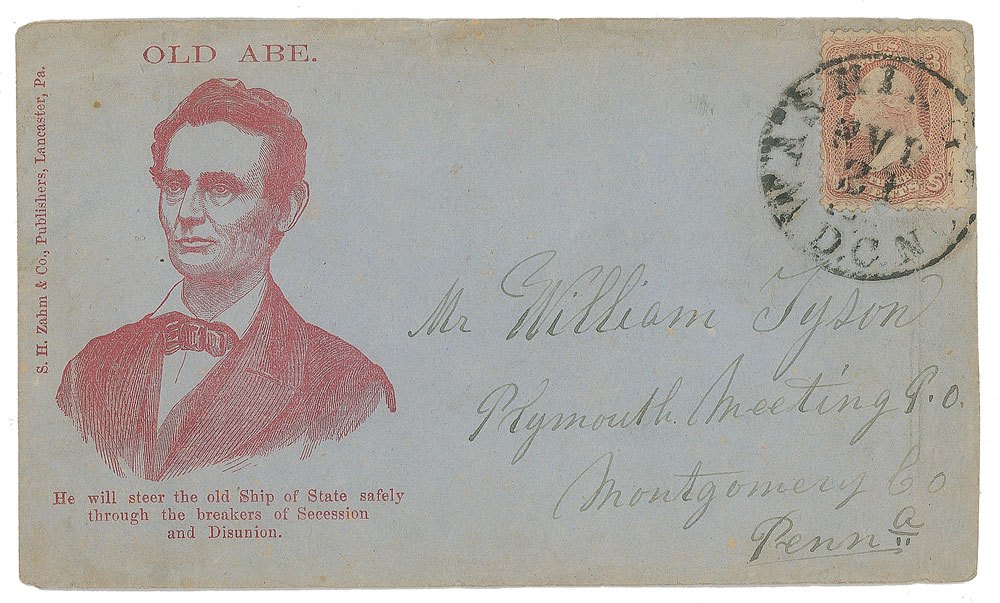 OLD ABE.
S. H. Zahm & Co., Publishers, Lancaster, Pa.
He will steer the old Ship of State safely
through the breakers of Secession
and Disunion.
U.S.
D.C.
21
Mr William Tyson
Plymouth Meeting P.O.
Montgomery Co
Penna